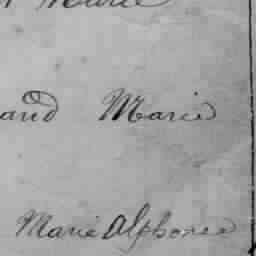 Marie
and Marie
Marie Alphonse